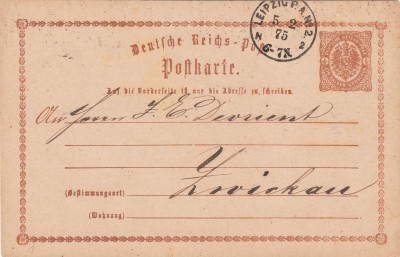 LEIPZIG P.A. No 2.
5 2
75
6-7N
Deutsche Reichs-Post
Postkarte.
Auf die Vorderseite ist nur die Adresse zu schreiben.
An Herrn J. E. Devrient
Zwickau
(Bestimmungsort)
(Wohnung)